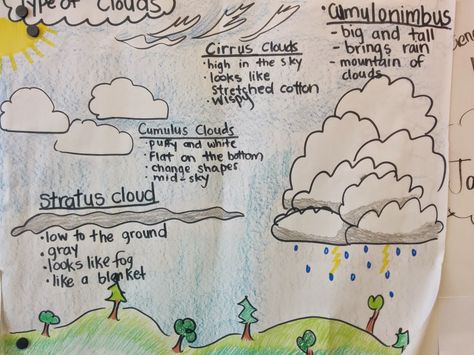 Type of Clouds
Cirrus Clouds
• high in the sky
• looks like
stretched cotton
• wispy
• Cumulonimbus
- big and tall
- brings rain
- mountain of
clouds
Cumulus Clouds
• puffy and white
• flat on the bottom
• change shapes
• mid-sky
Stratus cloud
• low to the ground
• gray
• looks like fog
• like a blanket